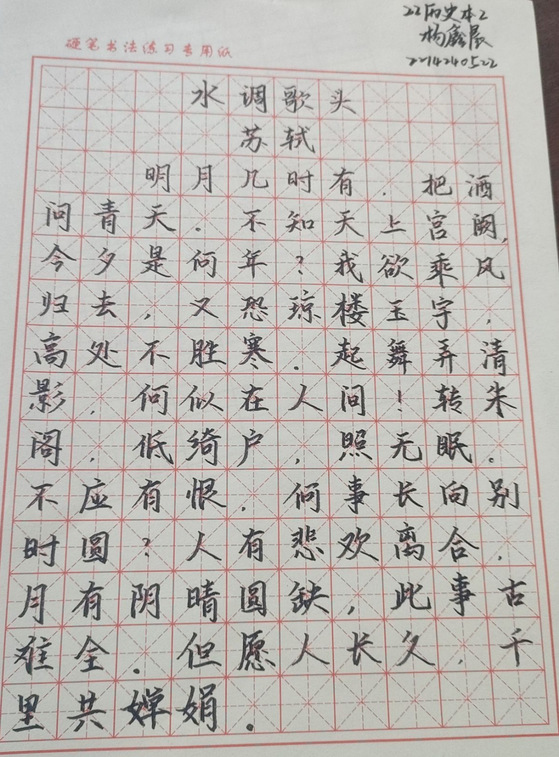 22历史本2
杨鑫晨
2214240522
硬笔书法练习专用纸
水调歌头
苏轼
明月几时有.把酒
问青天.不知天上宫阙,
今夕是何年?我欲乘风
归去,又恐琼楼玉宇,
高处不胜寒.起舞弄清
影,何似在人间!转朱
阁,低绮户,照无眠。
不应有恨,何事长向别
时圆?人有悲欢离合,
月有阴晴圆缺,此事古
难全.但愿人长久,千
里共婵娟.